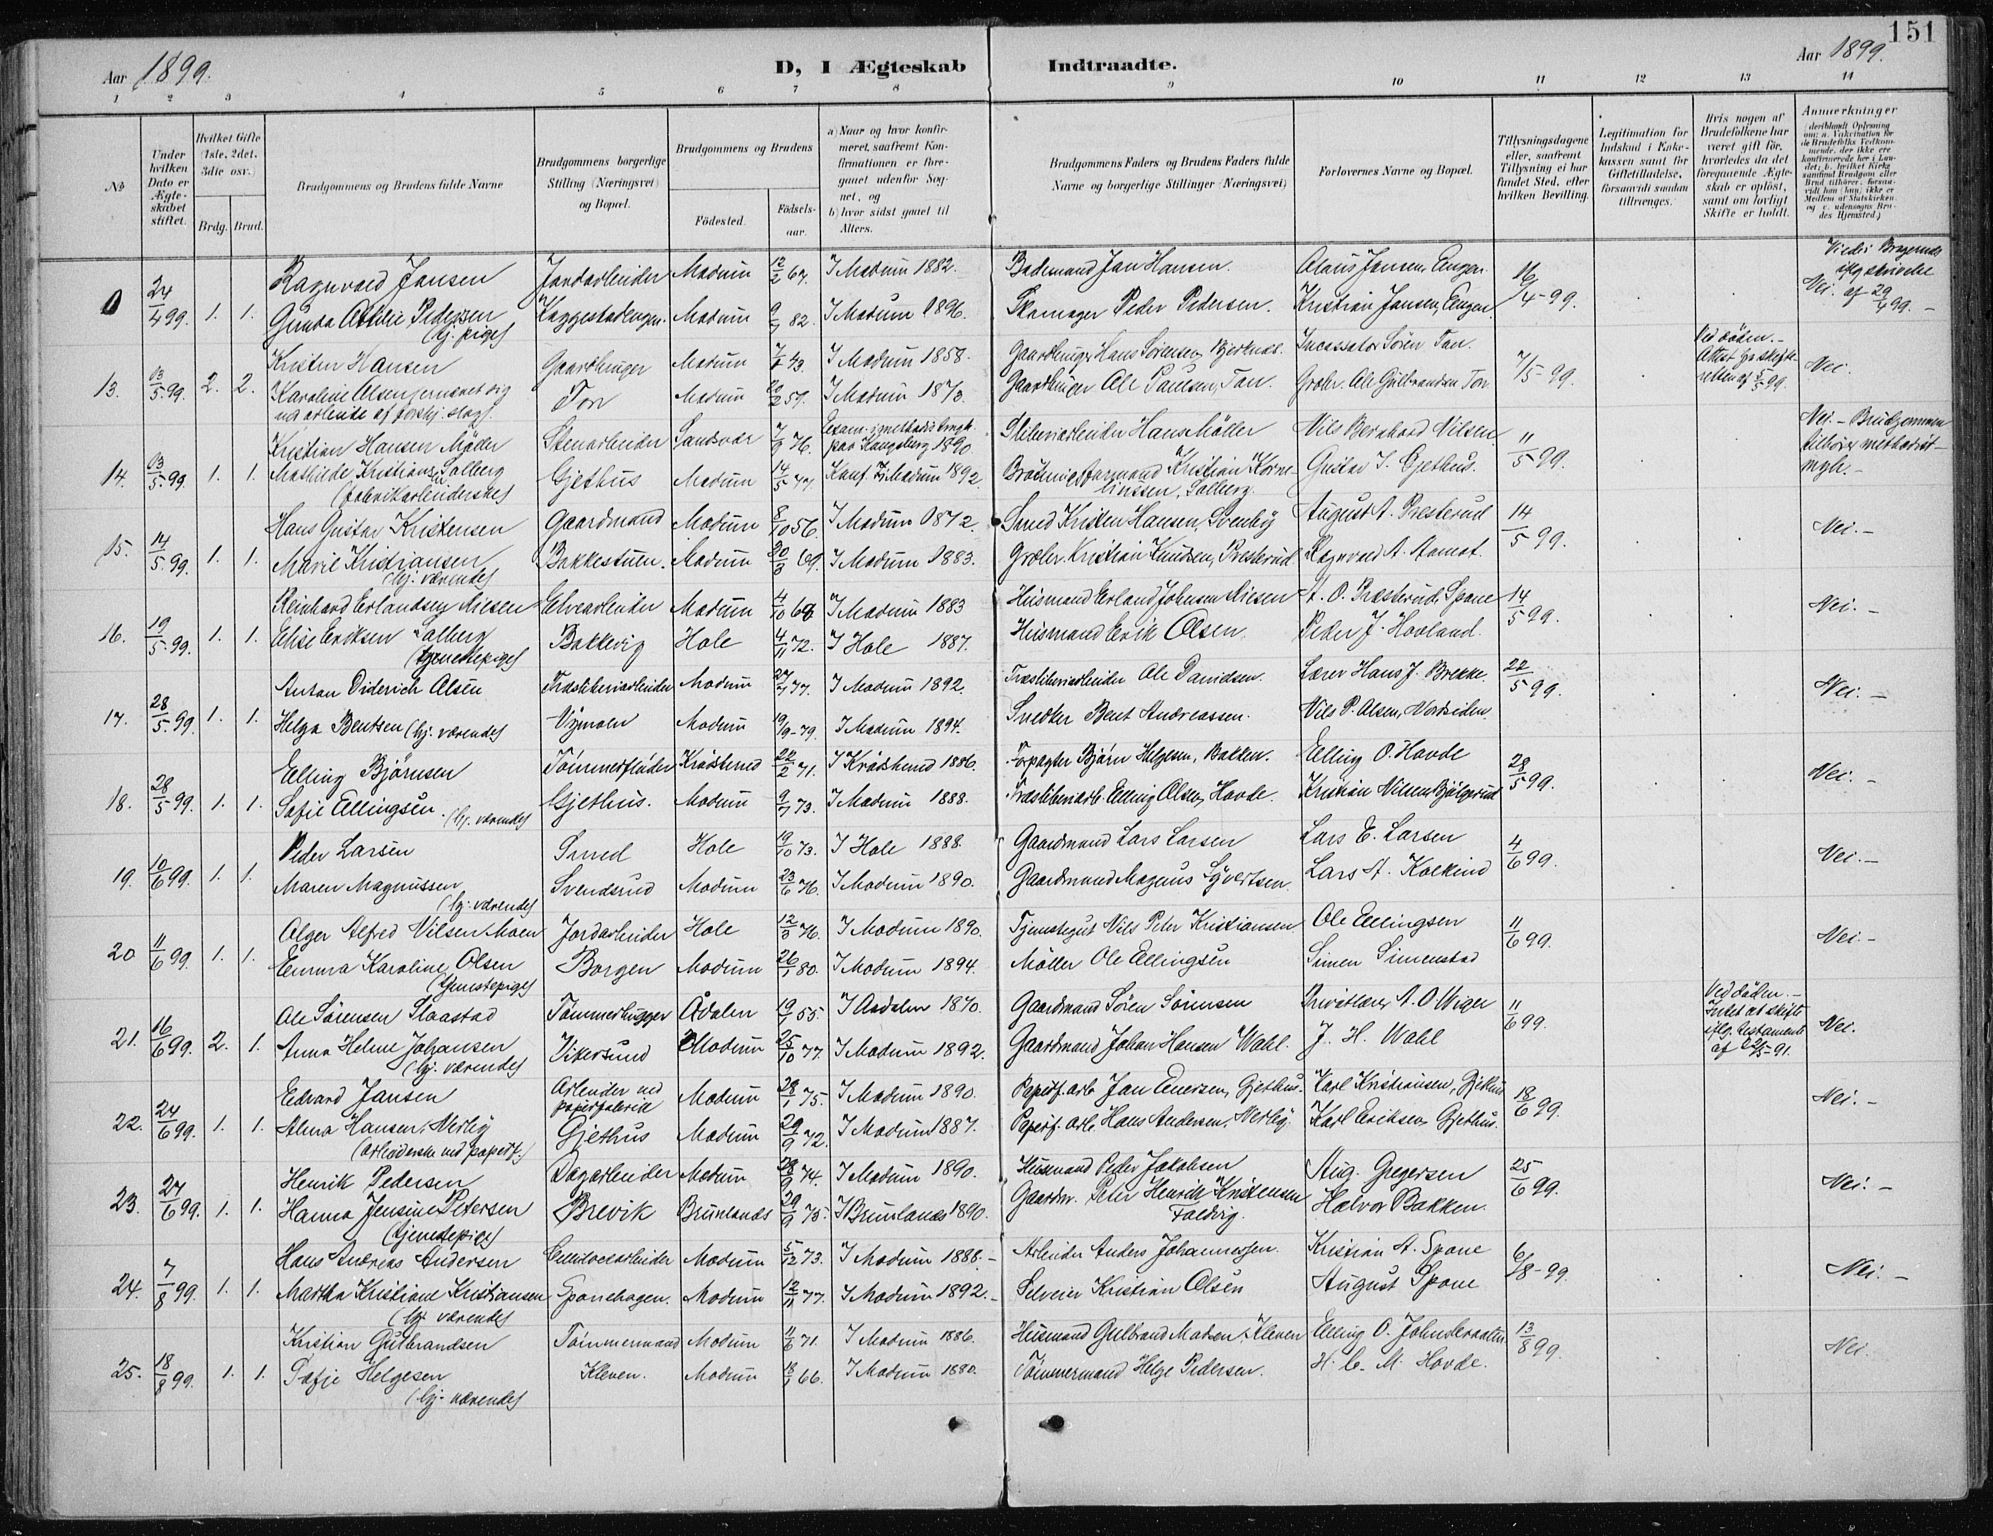 151
Aar 1899.
D, I Ægteskab Indtraadte.
Aar 1899.
1 2 3 4 5 6 7 8 9 10 11 12 13 14
№
Under hvilken Dato er Ægteskabet stiftet.
Hvilket Gifte (1ste, 2det, 3die osv.)
Brdg. Brud.
Brudgommens og Brudens fulde Navne
Brudgommens borgerlige Stilling (Næringsvei) og Bopæl.
Brudgommens og Brudens
Fødested.
Fødselsaar.
a) Naar og hvor konfirmeret, saafremt Konfirmationen er foregaaet udenfor Sognet, og
b) hvor sidst gaaet til Alters.
Brudgommens Faders og Brudens Faders fulde Navne og borgerlige Stillinger (Næringsvei)
Forlovernes Navne og Bopæl.
Tillysningsdagene eller, saafremt Tillysning ei har fundet Sted, efter hvilken Bevilling.
Legitimation for Indskud i Enkekassen samt for Giftetilladelse, forsaavidt saadan tiltrænges.
Hvis nogen af Brudefolkene har været gift før, hvorledes da det foregaaende Ægteskab er opløst, samt om lovligt Skifte er holdt.
Anmerkninger
24/4 99. 1. 1. Ragnvald Jansen Jordarbeider Modum 12/2 67. I Modum 1882. Jan Hansen. Olaus Jansen, Engen. 16/4-99.
Gunda Othilie Pedersen Kaggestadengen. Modum 82. I Modum 1896. Skomager Peder Pedersen. Kristian Jansen, Engen. Nei.
(hj. pige)
13. 13/5-99. 2. 2. Kristen Hansen Gaardbruger Modum 43. I Modum 1858. Gaardbruger Hans Sørensen, Bjerknes. Incassator Søren Ton. 7/5-99. Ved døden. Nei.
Karoline Olsen Ton Modum 57. I Modum 1873. Gaardbruger Ole Paulsen, Ton. Grdbr. Ole Gulbrandsen Ton
14. 13/5-99. 1. 1. Kristian Hansen Møller Stenarbeider Sandsvær 7/9 76. paa Kongsberg 1890 Sliberiarbeider Hans Møller Nils Bernhard Nilsen 11/5 99. Nei. - Brudgommen tilhører methodistmgh. -
Mathilde Kristiansen Solberg Gjethus Modum 14/5 77. Konf. I Modum 1892. Kristian Kornelinssen, Solberg. Gustav I. Gjethus.
(fabrikarbeiderske)
15. 14/5 99. 1. 1. Hans Gustav Kristensen Gaardmand Modum 8/10 56. I Modum 1872. Smed Kristen Hansen, Svenby August A. Presterud 14/5 99. Nei. -
Marie Kristiansen Bakkestuen. Modum 69. I Modum 1883. Grdbr. Kristian Knudsen, Presterud Ragnvald A. Aamot.
(hj. værende)
16. 19/5-99. 1. 1. Reinhard Erlandsen Miesen Elvearbeider Modum 4/10 68 I Modum 1883 Husmand Erland Johnsen Miesen A. O. Præsterud, Spone 14/5 99. Nei. -
Elise Eriksen Solberg Bakkevig Hole 4/11 72. I Hole 1887. Husmand Erik Olsen. Peder J. Hovland.
(tjenestepige)
17. 28/5-99. 1. 1. Anton Diderich Olsen Træsliberiarbeider Modum 77. I Modum 1892. Træsliberiarbeider Ole Davidsen. Lærer Hans J. Brekke. 22/5 99. Nei. -
Helga Bentsen (hj. værende) Vymoen Modum 19/9-79. I Modum 1894. Snedker Bent Andreassen. Nils P. Olsen, Nordsiden.
18. 28/5-99. 1. 1. Elling Bjørnsen Tømmerfløder Krødsherred 22/2 71. I Krødsherred 1886. Forpagter Bjørn Helgesen, Bakken. Elling O. Hovde 28/5 99. Nei. -
Sofie Ellingsen. (hj. værende) Gjethus. Modum 9/7 73. I Modum 1888. Træsliberiarb. Elling Olsen, Hovde. Kristian Nilsen
19. 10/6 99. 1. 1. Peder Larsen Smed Hole 19/10 73. I Hole 1888. Gaardmand Lars Larsen Lars E. Larsen 4/6 99. Nei. -
Maren Magnussen Svendsrud Modum 23/6 76. I Modum 1890. Gaardmand Magnus Syvertsen. Lars A. Kolkind
(hj. værende)
20 11/6 99. 1. 1. Olger Alfred Nilsen Moen Jordarbeider Hole 12/3 76. I Modum 1890. Tjenestegut Nils Peter Kristiansen Ole Ellingsen 11/6 99. Nei. -
Emma Karoline Olsen Borgen Modum 26/1 80. I Modum 1894. Møller Ole Ellingsen Simen Simenstad
(tjenestepige)
21. 16/6 99. 2. 1. Ole Sørensen Slaastad Tømmerhugger Ådalen 19/1 55. I Aadalen 1870. Gaardmand Søren Sørensen Privatlærer A. O. Wiger 11/6 99. Ved døden. - Intet at skifte iflg. testamente Nei.
Anna Helene Johansen Vikersund Modum 25/10 77. I Modum 1892. Gaardmand Johan Hansen Wahl. J. H. Wahl
(hj. værende)
22. 24/6 99. 1. 1. Edvard Jansen Arbeider ved papirfabrik Modum 75. I Modum 1890. Papirf. arb. Jan Enersen, Gjethus. Karl Kristiansen, Gjethus 18/6 99. Nei. -
Alma Hansen, Nerby Gjethus Modum 29/9 72. I Modum 1887. Papirf. arb. Hans Andersen, Nerby. Karl Eriksen, Gjethus.
(arbeiderske ved papirf.)
23. 24/6 99. 1. 1. Henrik Pedersen Dagarbeider Modum 74. I Modum 1890. Husmand Peder Jakobsen Aug. Gregersen 25/6 99. Nei. -
Hanna Jensine Petersen Brevik Brunlanes 29/9 75. I Brunlanes 1890. Gaardm. Peter Henrik Kristensen Foldvig. Halvor Bakken.
(tjenestepige)
24. 7/8 99. 1. 1. Hans Andreas Andersen Modum 5/12 73. I Modum 1888. - Arbeider Anders Johannessen. Kristian A. Spone 6/8-99. Nei. -
Martha Kristiane Kristiansen Sponehagen. Modum 12/11 77. I Modum 1892. - Selveier Kristian Olsen August Spone
(hj. værende)
25. 18/8 99. 1. 1. Kristian Gulbrandsen Tømmermand Modum 11/6 71. I Modum 1886. Husmand Gulbrand Madsen Kleven Elling O. Johnsbraaten 13/8 99. Nei.
Sofie Helgesen Kleven. Modum 66. I Modum 1880. Tømmermand Helge Pedersen. H. C. M. Hovde.
(hj. værende)